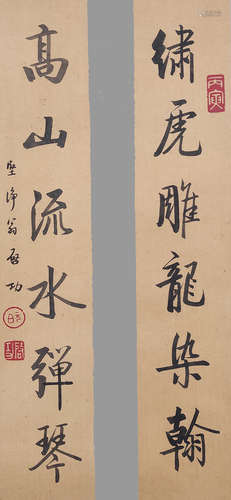 绣虎雕龍染翰
丙寅
高山流水弹琴
坚净翁启功